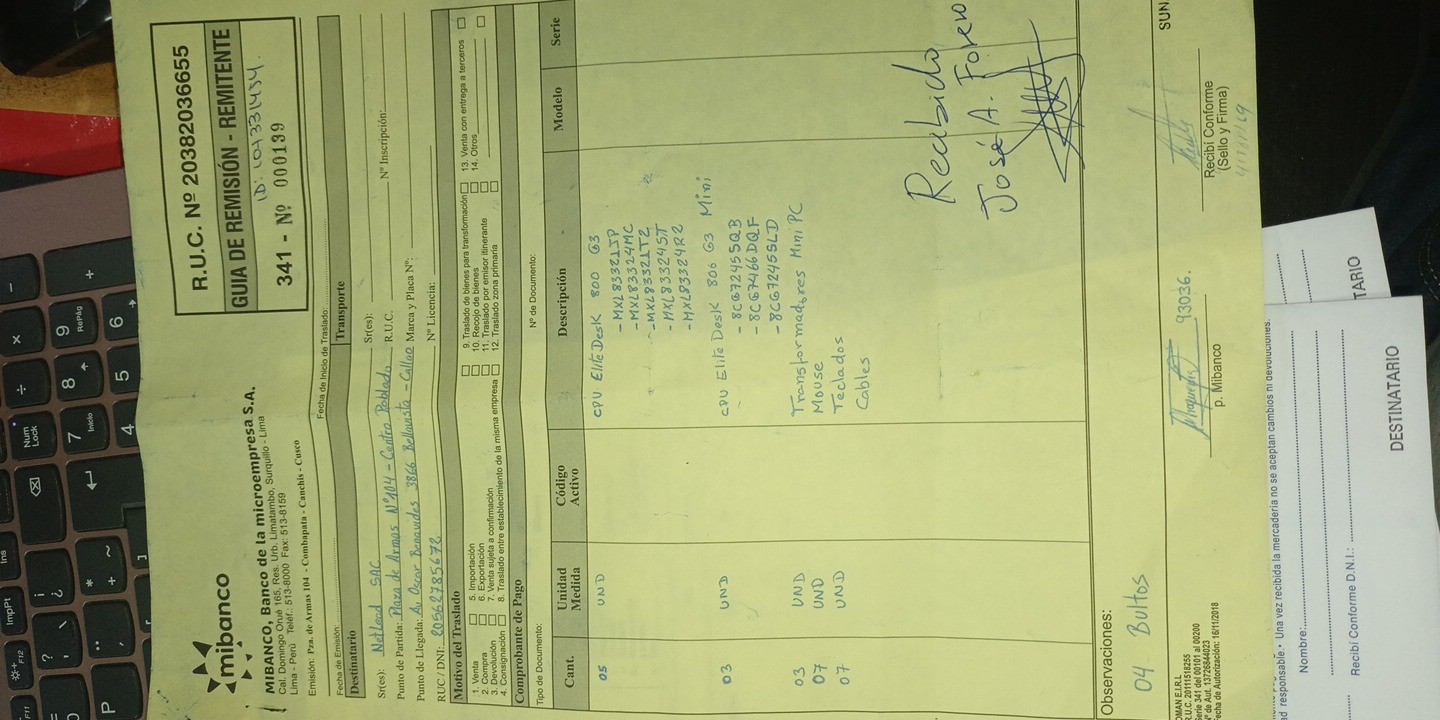 mibanco
MIBANCO, Banco de la microempresa S.A.
Cal. Domingo Orué 165, Res. Urb. Limatambo, Surquillo - Lima
Lima - Perú Teléf.: 513-8000 Fax: 513-8159
Emisión: Pza. de Armas 104 - Combapata - Canchis - Cusco
R.U.C. Nº 20382036655
GUIA DE REMISIÓN - REMITENTE
ID: 1047331434.
341 - Nº 000139
Fecha de Emisión:
Fecha de Inicio de Traslado:
Destinatario
Transporte
Sr(es): Netlead SAC
Sr(es):
Punto de Partida: Plaza de Armas Nº 104 - Centro Poblado
R.U.C.
Nº Inscripción:
Punto de Llegada: Av Oscar Benavides 3866 Bellavista - Callao
Marca y Placa Nº:
RUC / DNI: 20562785672
Nº Licencia:
Motivo del Traslado
1. Venta
2. Compra
3. Devolución
4. Consignación
5. Importación
6. Exportación
7. Venta sujeta a confirmación
8. Traslado entre establecimiento de la misma empresa
9. Traslado de bienes para transformación
10. Recojo de bienes
11. Traslado por emisor itinerante
12. Traslado zona primaria
13. Venta con entrega a terceros
14. Otros
Comprobante de Pago
Tipo de Documento:
Nº de Documento:
Cant. Unidad Medida Código Activo Descripción Modelo Serie
05 UND CPU EliteDesk 800 G3
- MXL83321JP
- MXL83324MC
- MXL83321TZ
- MXL833245T
- MXL83324R2
03 UND CPU EliteDesk 800 G3 Mini
- 8CG72455QB
- 8CG7466DQF
- 8CG72455LD
03 UND Transformadores Mini PC
07 UND Mouse
07 UND Teclados
Cables
Recibido
José A. Forero
Observaciones:
04 Bultos
93036.
p. Mibanco
Recibí Conforme
(Sello y Firma)
SUN
OMAN E.I.R.L
R.U.C. 20111518255
Serie 341 del 00101 al 00200
Nº de Aut. 13726844023
Fecha de Autorización: 16/11/2018
responsable. • Una vez recibida la mercadería no se aceptan cambios ni devoluciones.
Nombre:
Recibí Conforme D.N.I.:
DESTINATARIO
TARIO
F11
F12
ImpPt
Ins
Num Lock
÷
×
−
7
Inicio
8
9
RePág
+
4
5
6
P